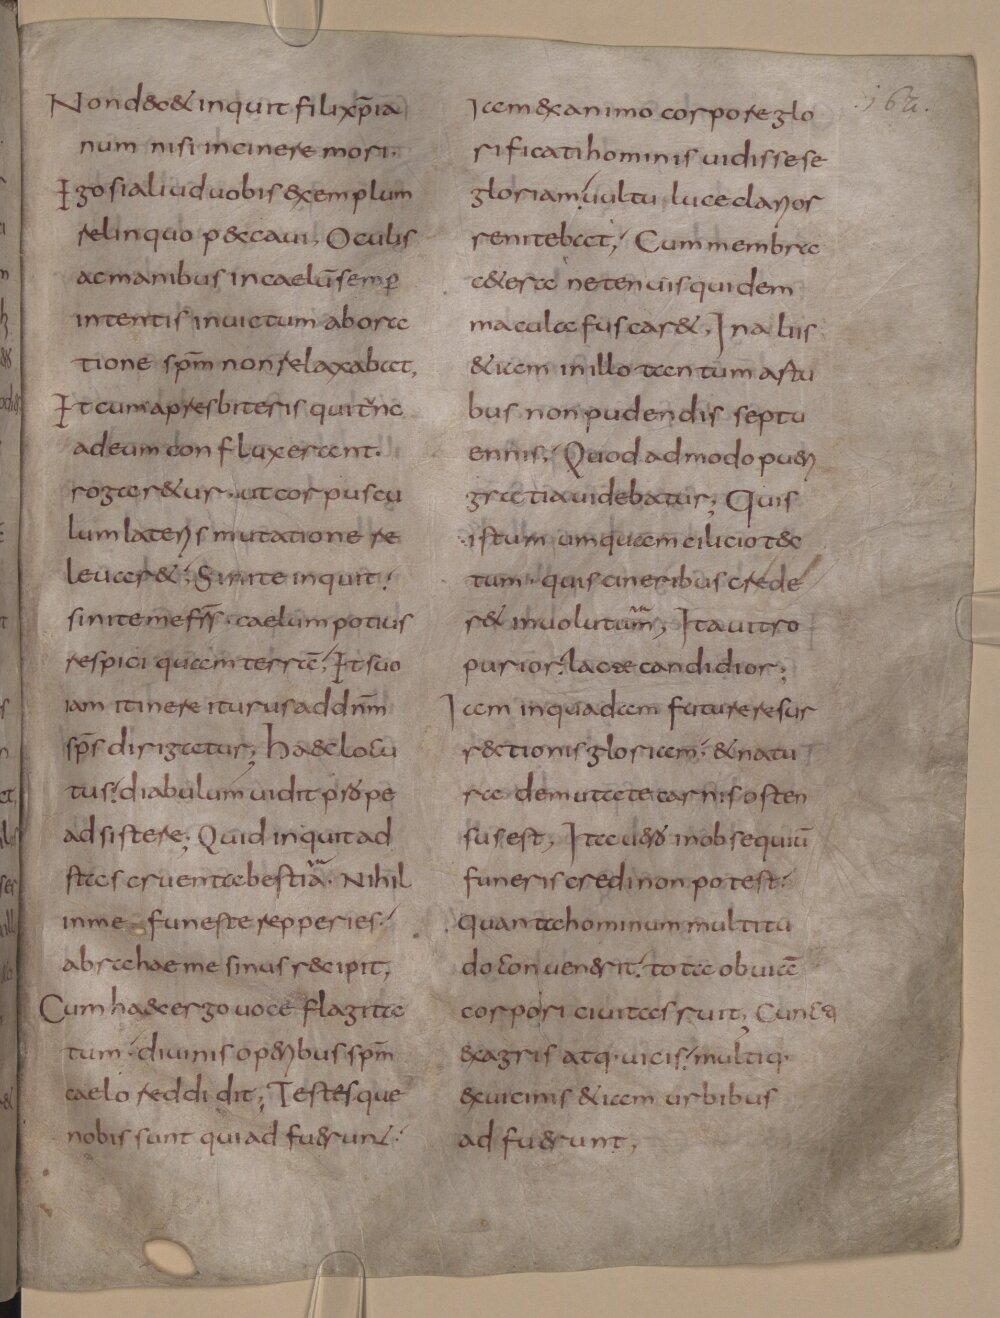 162.
Non decet inquit filii xp̄ia
num nisi in cinere mori·
Ego si aliud uobis exemplum
relinquo peccaui, Oculis
ac manibus in caelū semp
intentis inuictum ab ora
tione sp̄m non relaxabat,
Et cum a presbiteris qui t̄nc
ad eum confluxerant·
rogaretur· ut corpuscu
lum lateris mutatione re
leuaret; Sinite inquit
sinite me frs̄· caelum potius
respici quam terrā; Et suo
iam itinere iturus ad dn̄m
sp̄s dirigatur; haec locu
tus diabulum uidit prope
adsistere; Quid inquit ad
stas cruenta bestia· Nihil
in me funeste repperies
abrahae me sinus recipit,
Cum hac ergo uoce flagita
tum diuinis operibus sp̄m
caelo reddidit; Testesque
nobis sunt qui ad fuerunt
Iam exanimo corpore glo
rificati hominis uidisse se
gloriam uultu luce clarior
renitebat; Cum membra
cetera ne tenuis quidem
macula fuscaret, In aliis
etiam in illo tantum astu
bus non pudendis septu
ennis; Quod ad modo pueri
gratia uidebatur; Quis
istum umquam cilicio tec
tum· quis cineribus crede
ret inuolutum, Ita uitro
purior lacte candidior;
Iam in quadam future resur
rectionis gloriam et natu
ra demutate carnis osten
sus est, Ita uero in obsequiū
funeris credi non potest
quanta hominum multitu
do conuenerit tota obuiā
corpori ciuitas ruit; Cuncti
ex agris atq· uicis multiq·
ex uicinis etiam urbibus
ad fuerunt,